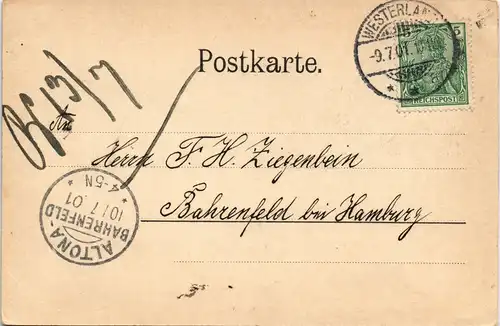 Postkarte.
WESTERLAND
-9.7.01.
5
REICHSPOST
13/7
An
Herrn F. H. Ziegenbein
Bahrenfeld bei Hamburg
ALTONA
BAHRENFELD
10/7.01
4-5N